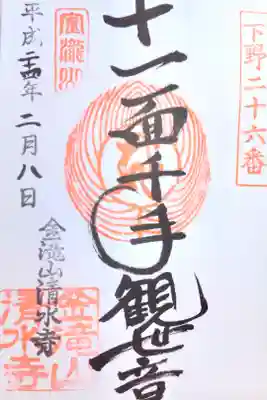 下野二十六番
十一面千手観世音
宝瀧山
平成二十四年二月八日
金瀧山清水寺
金竜山
清水寺